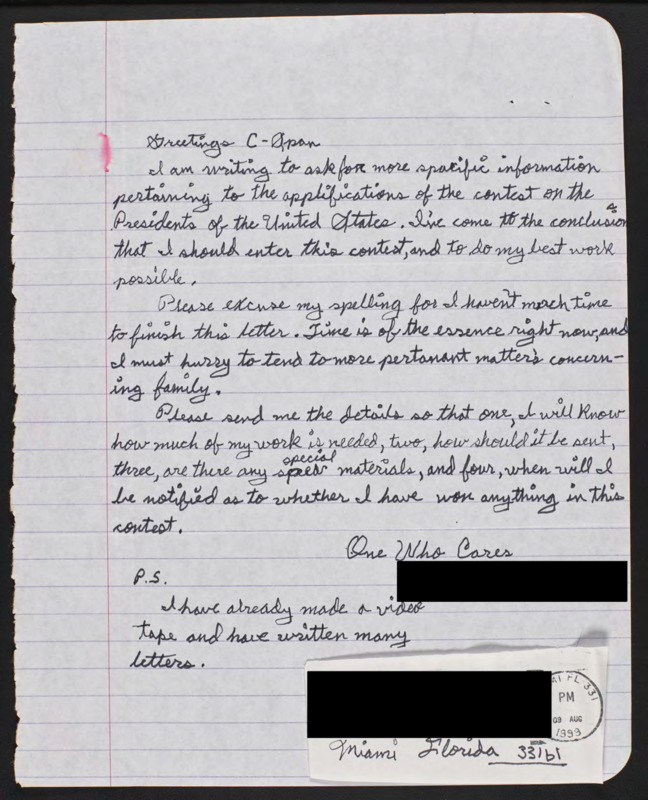 Greetings C-Span
I am writing to ask for more spacific information
pertaining to the applifications of the contest on the
Presidents of the United States. I've come to the conclusion
that I should enter this contest, and to do my best work
possible.
Please excuse my spelling for I haven't much time
to finish this letter. Time is of the essence right now, and
I must hurry to tend to more pertanant matters concern-
ing family.
Please send me the details so that one, I will know
how much of my work is needed, two, how should it be sent,
three, are there any special materials, and four, when will I
be notified as to whether I have won anything in this
contest.
One Who Cares
P.S.
I have already made a video
tape and have written many
letters.
FL 331
PM
03 AUG
1999
Miami Florida 33161